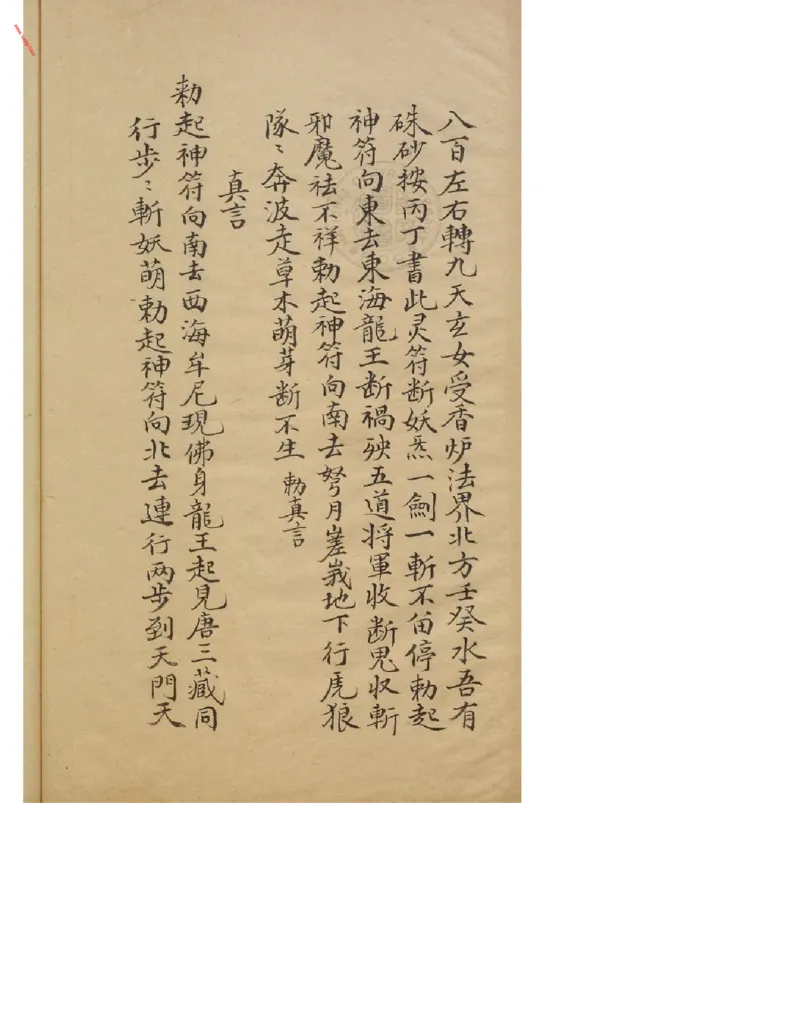 八百左右轉九天玄女受香炉法界北方壬癸水吾有
硃砂按丙丁書此灵符断妖炁一劍一斬不留停勅起
神符向東去東海龍王断禍殃五道将軍收断鬼収斬
邪魔祛不祥勅起神符向南去弩月嵳峩地下行虎狼
隊〻奔波走草木萌芽断不生 勅真言
真言
勑起神符向南去西海牟尼現佛身龍王起見唐三藏同
行步〻斬妖萌勅起神符向北去連行兩步到天門天